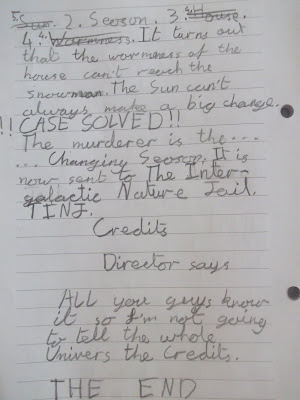 2. Season. 3.
4. It turns out
that the wormness of the
house can't reach the
snowman. The Sun can't
always make a big change.
!! CASE SOLVED!!
The murderer is the...
... Changing Season. It is
now sent to The Inter-
galactic Nature Jail.
TINJ.
Credits
Director says
All you guys know
it so I'm not going
to tell the whole
Univers the Credits.
THE END